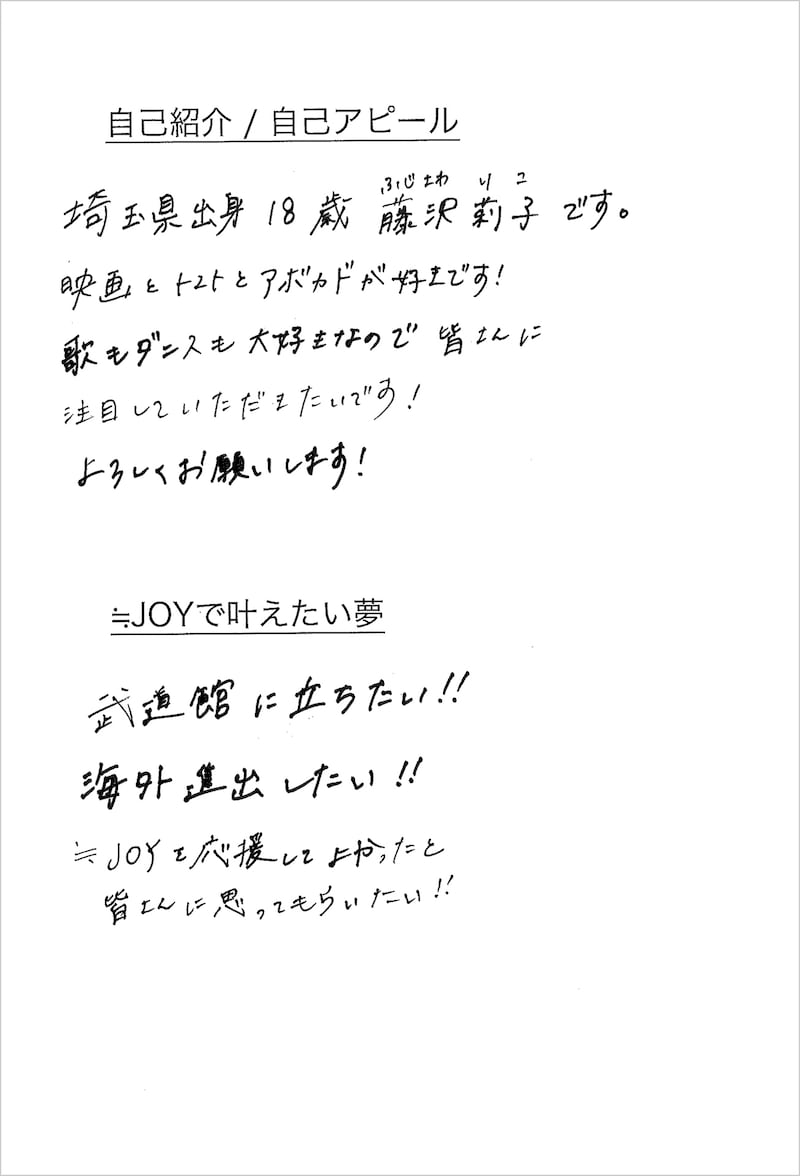 自己紹介 / 自己アピール
ふじさわ りこ
埼玉県出身 18歳 藤沢莉子です。
映画とトマトとアボカドが好きです!
歌もダンスも大好きなので 皆さんに
注目していただきたいです!
よろしくお願いします!
≒JOYで叶えたい夢
武道館に立ちたい!!
海外進出したい!!
≒JOYを応援してよかったと
皆さんに思ってもらいたい!!